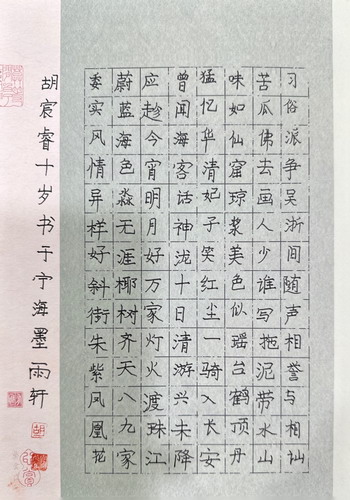 习俗派争吴浙间随声相誉与相讪
苦瓜佛去画人少谁写拖泥带水山
味如仙窟琼浆美色似瑶台鹤顶丹
猛忆华清妃子笑红尘一骑入长安
曾闻海客话神泷十日清游兴未降
应趁今宵明月好万家灯火渡珠江
蔚蓝海色淼无涯椰树齐天八九家
委实风情异样好斜街朱紫凤凰花
胡宸睿十岁书于宁海墨雨轩